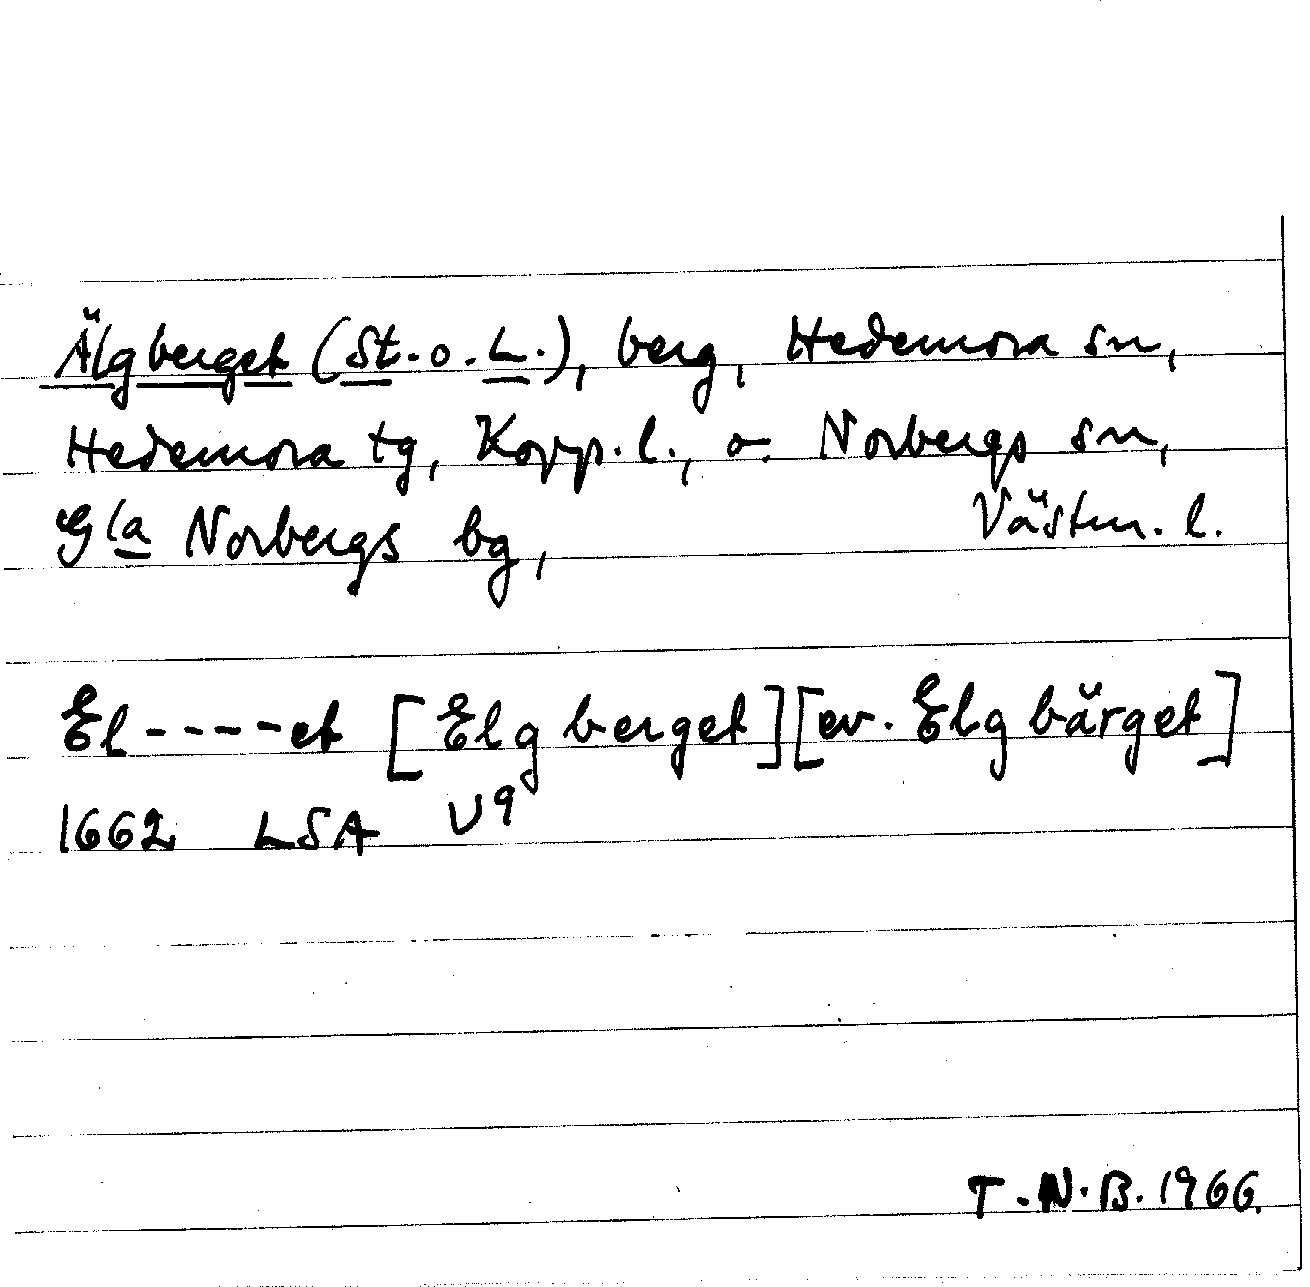 Älgberget (St. o. L.), berg, Hedemora sn,
Hedemora tg, Kopp. l., o. Norbergs sn,
Gla Norbergs bg, Västm. l.
El-----et [Elgberget] [ev. Elgbärget]
1662 LSA U9
T.N.B. 1966.